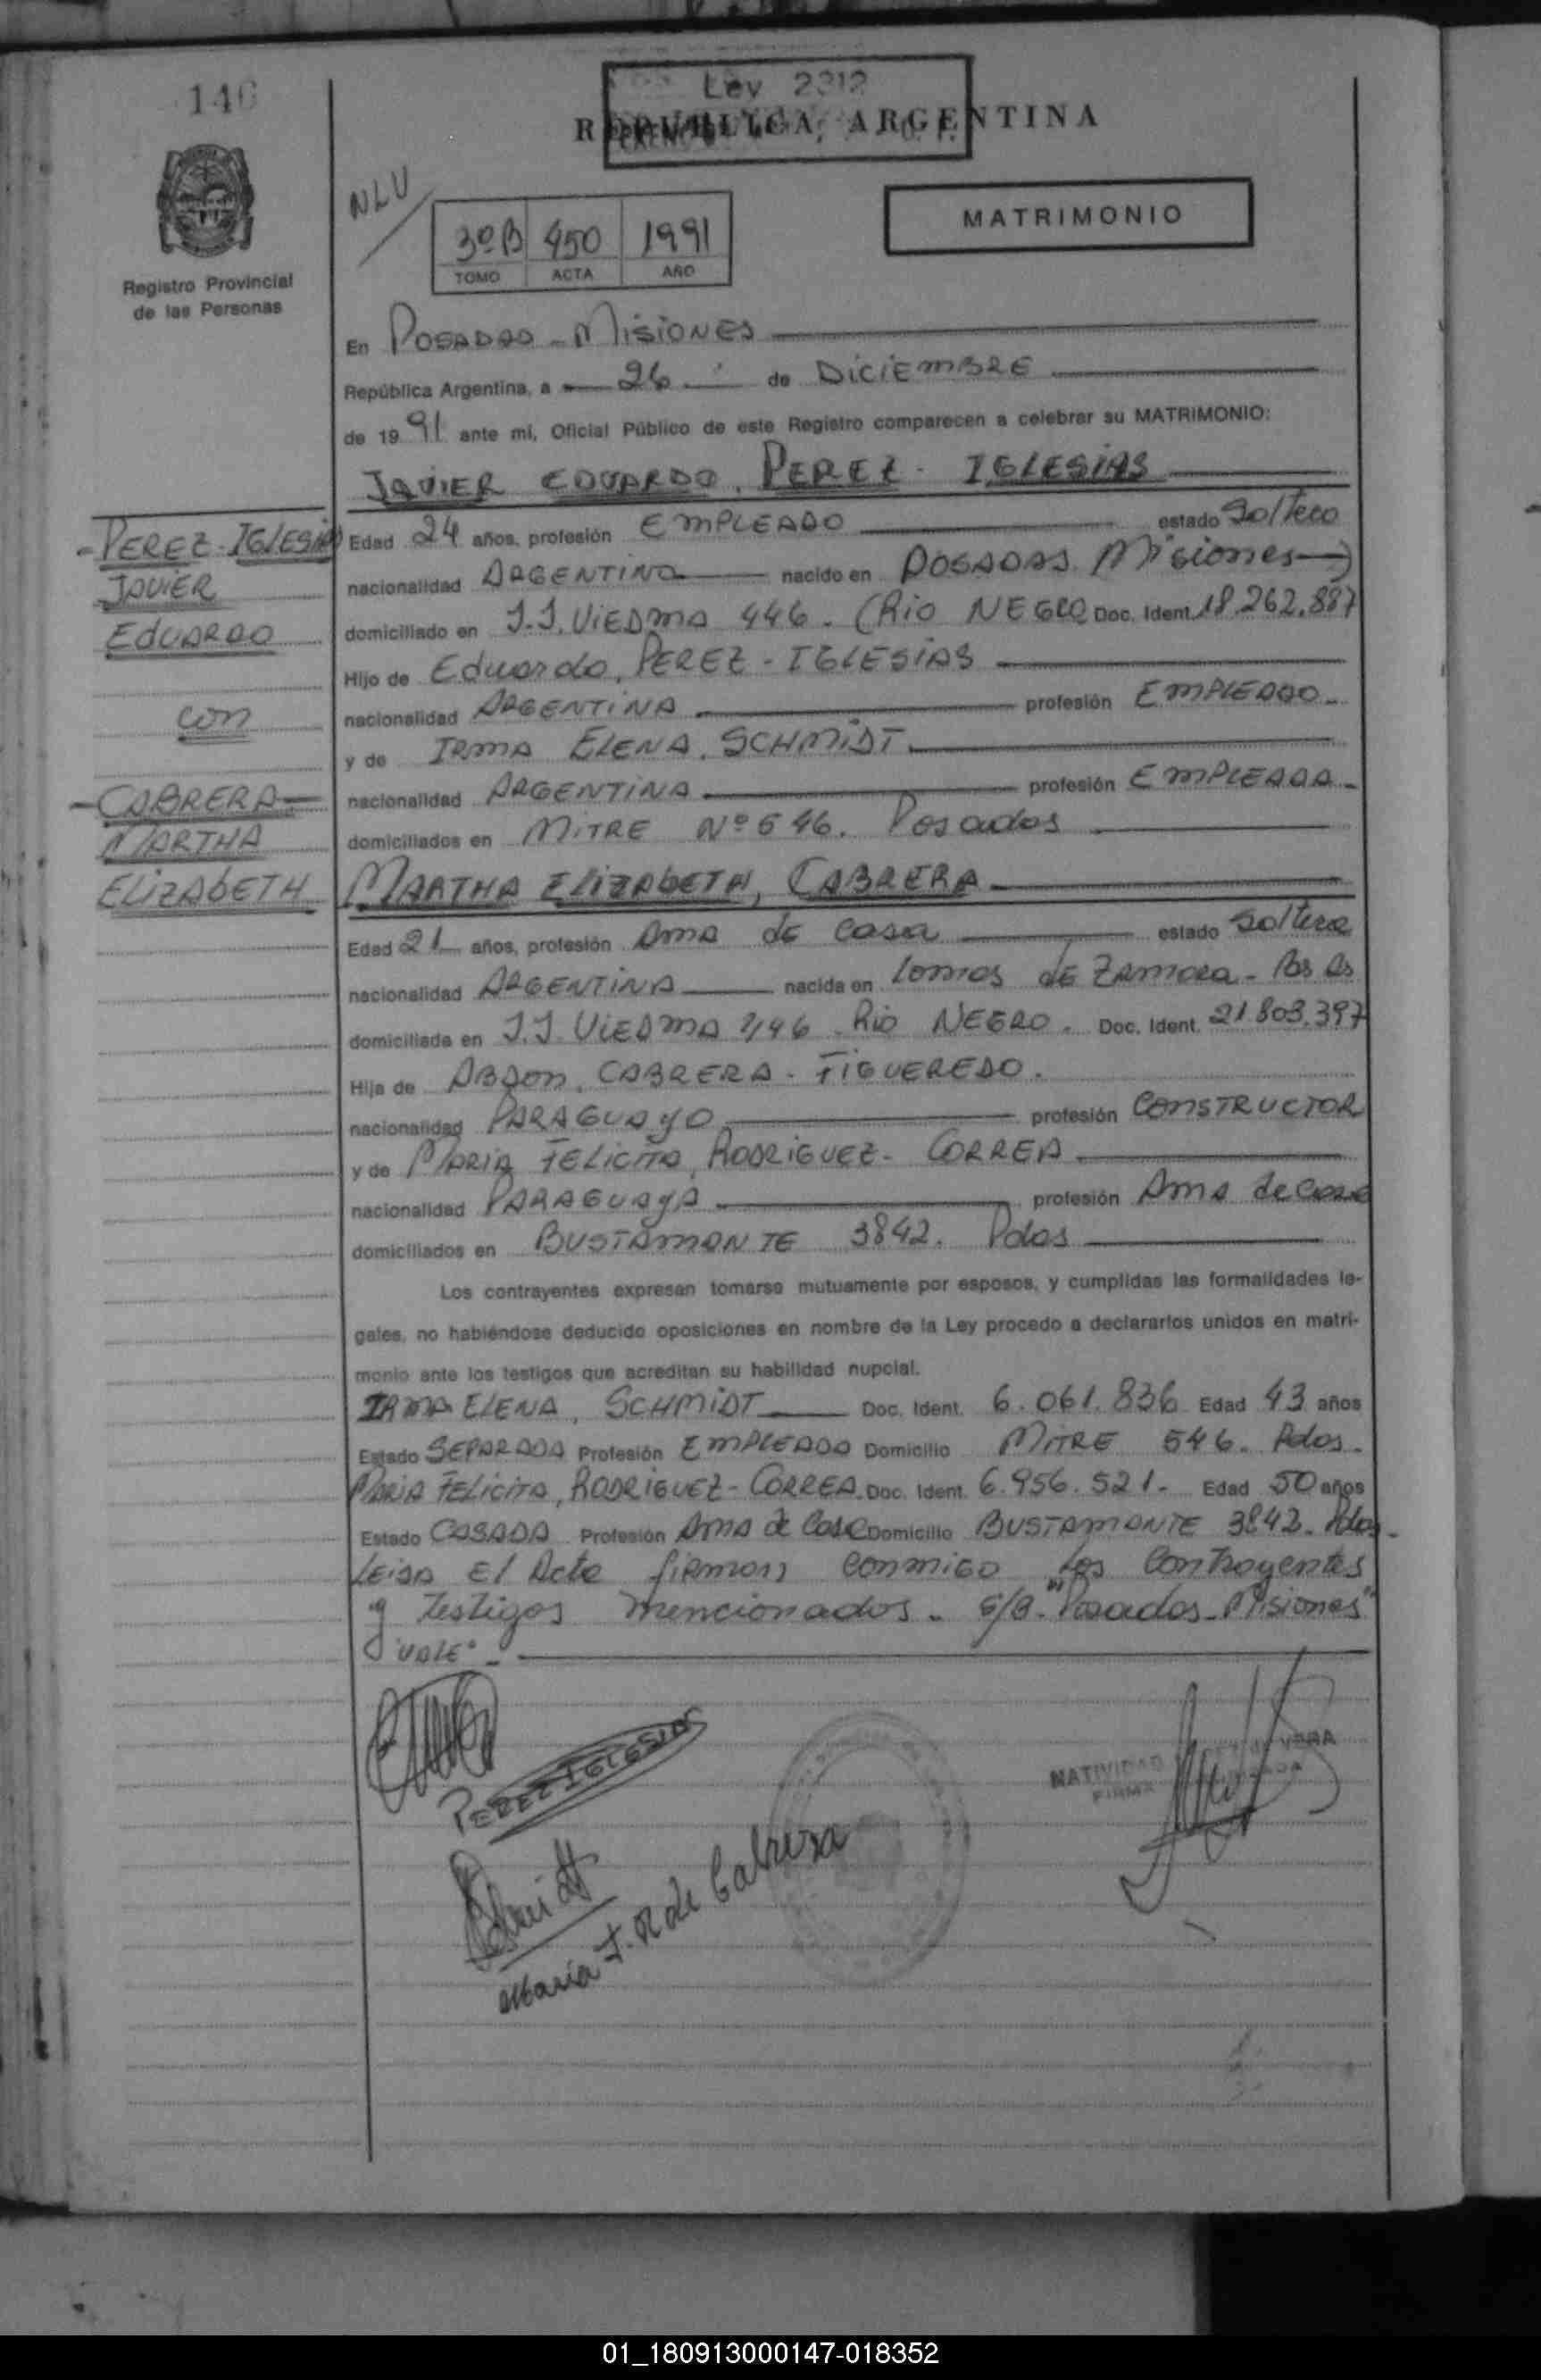 146
Ley 2312
REPUBLICA ARGENTINA
NLU
MATRIMONIO
3º B 450 1991
TOMO ACTA AÑO
Registro Provincial
de las Personas
En POSADAS - MISIONES
República Argentina, a 26 de DICIEMBRE
de 1991 ante mi, Oficial Público de este Registro comparecen a celebrar su MATRIMONIO:
JAVIER EDUARDO, PEREZ - IGLESIAS
- PEREZ - IGLESIAS
JAVIER
EDUARDO
con
- CABRERA -
MARTHA
ELIZABETH
Edad 24 años, profesión EMPLEADO estado Soltero
nacionalidad ARGENTINA nacido en POSADAS Misiones
domiciliado en J.J. VIEDMA 446. (RIO NEGRO Doc. Ident. 18.262.887
Hijo de Eduardo, PEREZ - IGLESIAS
nacionalidad ARGENTINA profesión EMPLEADO -
y de IRMA ELENA, SCHMIDT
nacionalidad ARGENTINA profesión EMPLEADA -
domiciliados en MITRE Nº 546. Posadas
MARTHA ELIZABETH, CABRERA
Edad 21 años, profesión Ama de Casa estado Soltera
nacionalidad ARGENTINA nacida en Lomas de Zamora - Bs As
domiciliada en J.J. VIEDMA 446 - Rio NEGRO. Doc. Ident. 21.803.397
Hija de ABDON, CABRERA - FIGUEREDO.
nacionalidad PARAGUAYO profesión CONSTRUCTOR
y de MARIA FELICITA, RODRIGUEZ - CORREA
nacionalidad PARAGUAYA profesión Ama de Casa
domiciliados en BUSTAMANTE 3842. Pdas
Los contrayentes expresan tomarse mutuamente por esposos, y cumplidas las formalidades le-
gales, no habiéndose deducido oposiciones en nombre de la Ley procedo a declararlos unidos en matri-
monio ante los testigos que acreditan su habilidad nupcial.
IRMA ELENA, SCHMIDT Doc. Ident. 6.061.836 Edad 43 años
Estado SEPARADA Profesión EMPLEADA Domicilio MITRE 546. Pdas.
MARIA FELICITA, RODRIGUEZ - CORREA. Doc. Ident. 6.956.521 - Edad 50 años
Estado CASADA Profesión Ama de Casa Domicilio BUSTAMANTE 3842. Pdas -
LEIDA El Acta firman conmigo los Contrayentes
y Testigos mencionados. S/B. "Posadas - Misiones"
"VALE" -
PEREZ IGLESIAS
Schmidt
Maria F. R de Cabrera
NATIVIDAD VERA
FIRMA
01_180913000147-018352